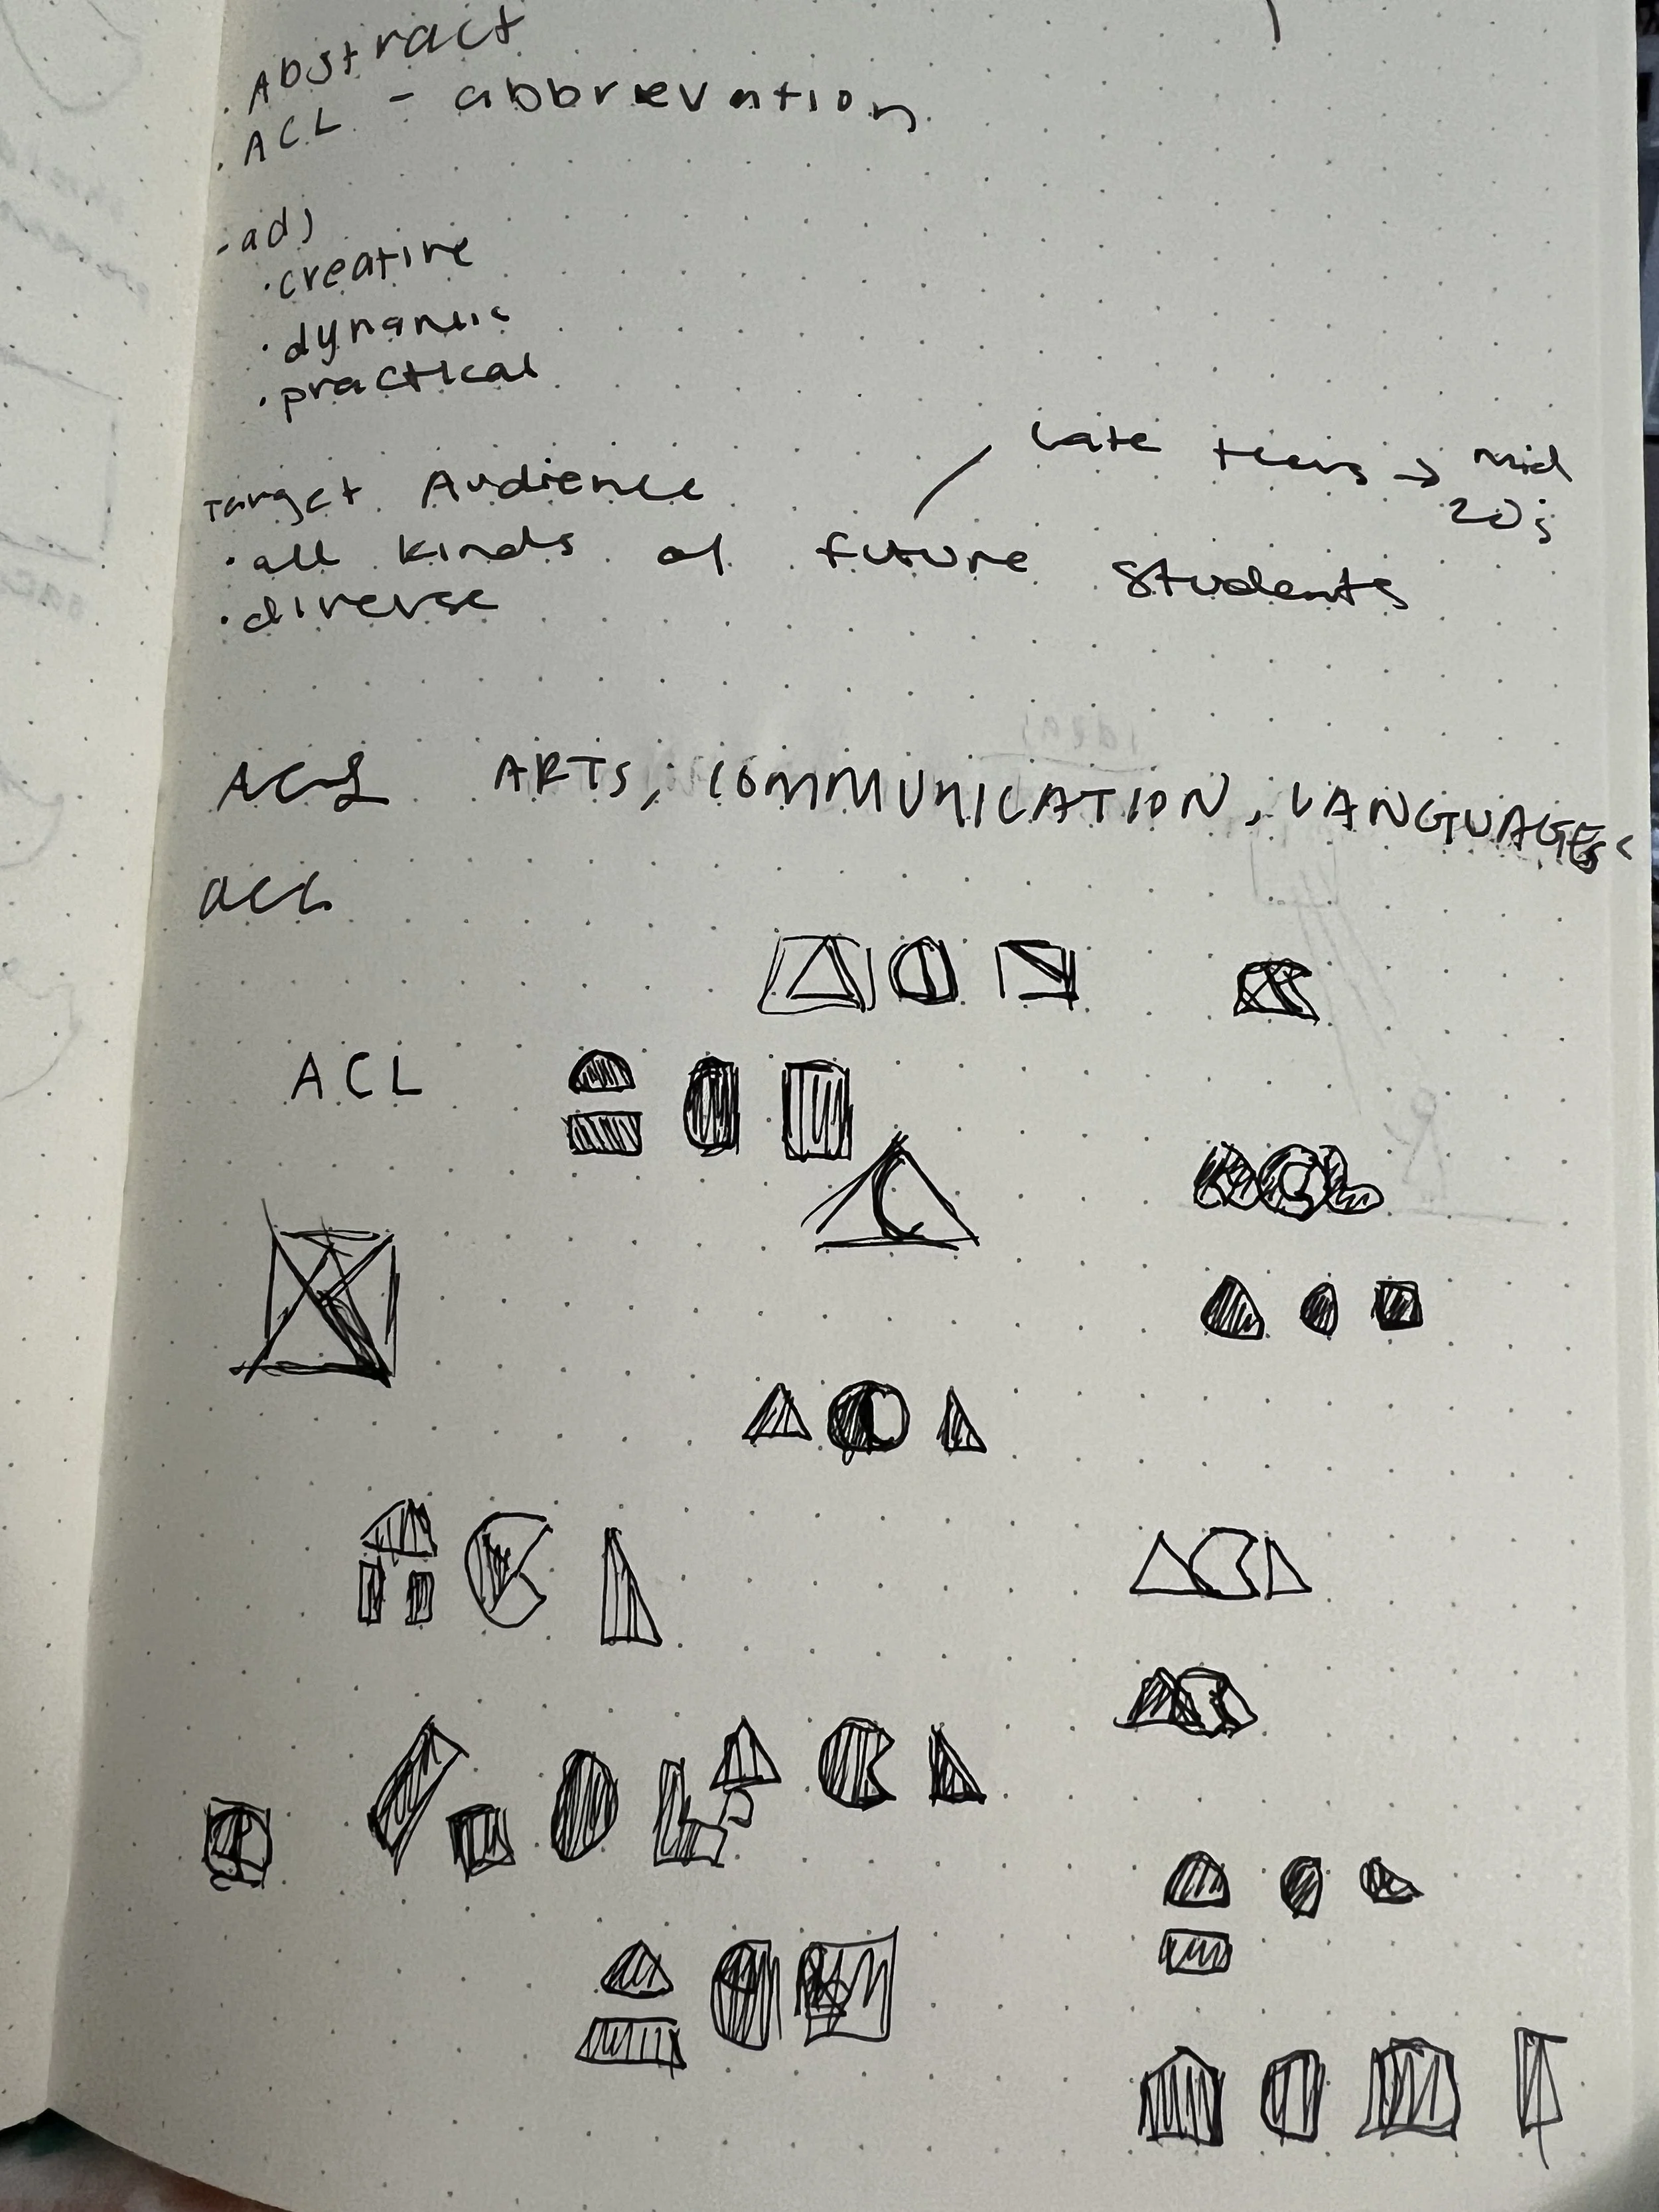 . Abstract
. ACL - abbrievation
- adj
· creative
· dynamic
· practical
Target Audience
late teens → mid 20s
· all kinds of future students
· diverse
ACL ARTS, COMMUNICATION, LANGUAGES
acl
ACL
ACL